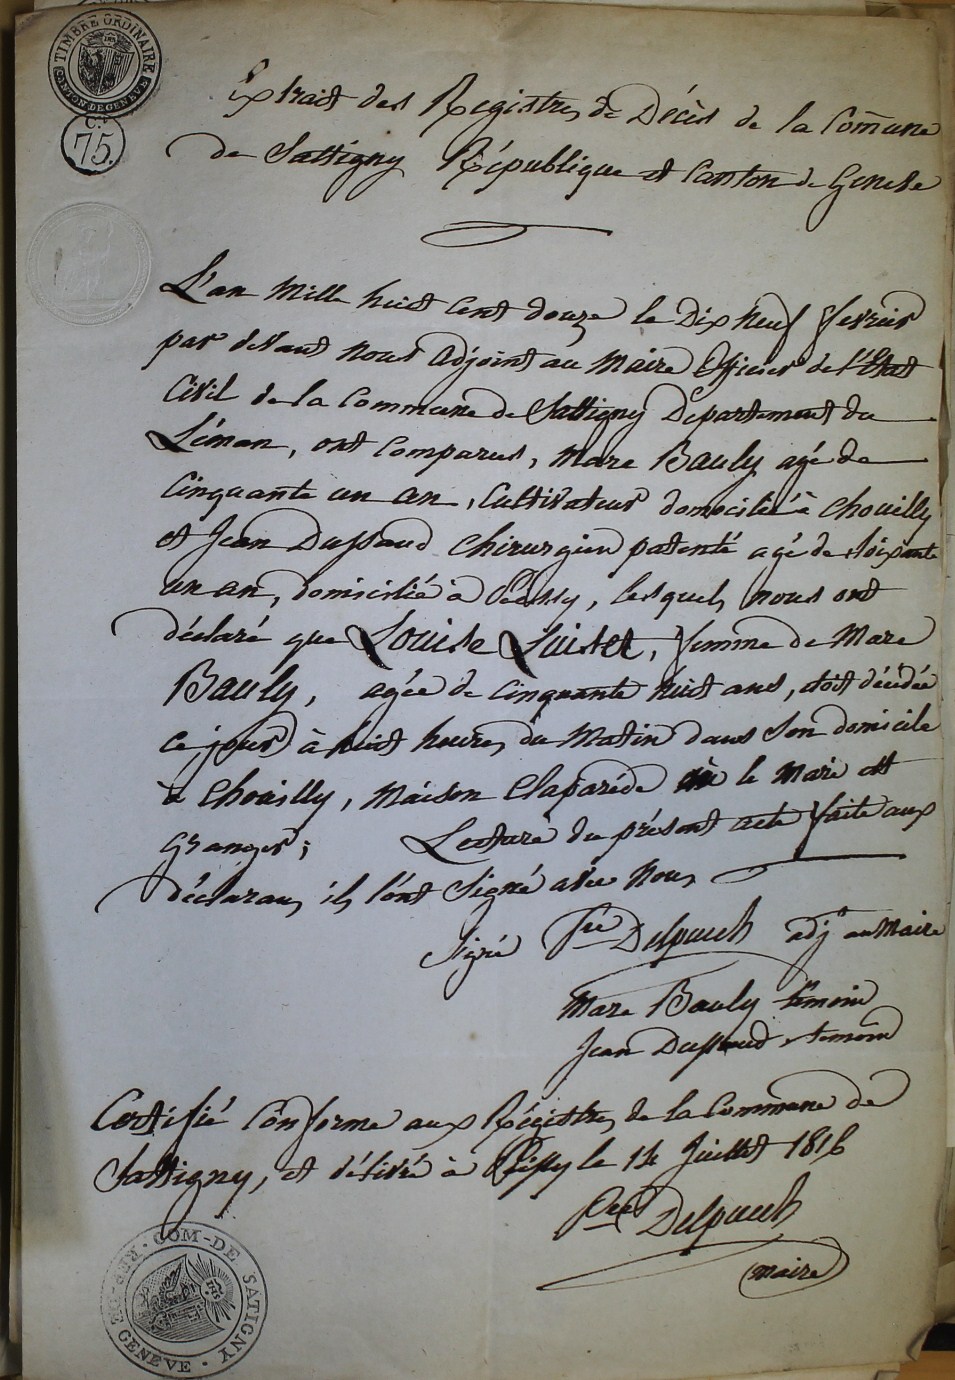 TIMBRE ORDINAIRE
CANTON DE GENEVE
C.s
75.
Extrait des Registres de Décès de la Com̄une
de Sattigny République et Canton de Geneve
L'an Mille huit cent douze le Dix neuf fevrier
par devant nous Adjoint au Maire Officier de l'Etat
Civil de la Commune de Sattigny Departement du
Léman, ont comparus, Marc Bauly agé de
Cinquante un an, Cultivateur domicilié à Chouilly
et Jean Dussaud Chirurgien patenté agé de soixante
un an, domicilié à Peissy, lesquels nous ont
déclaré que Louise Luiset, femme de Marc
Bauly, agée de cinquante huit ans, étoit décédée
ce jour à huit heures du Matin dans son domicile
à Chouilly, Maison Claparéde le Mari est
Granger; Lecture du présent acte faite aux
déclarans ils l'ont signé avec nous
Signé Pre Delpuech adjt au Maire
Marc Bauly témoin
Jean Dussaud temoin
Certifié Conforme aux Régistres de la Commune de
Sattigny, et délivré à Peissy le 14 Juillet 1816
Pre Delpuech
Maire
REP. DE GENEVE · COM-DE SATIGNY ·